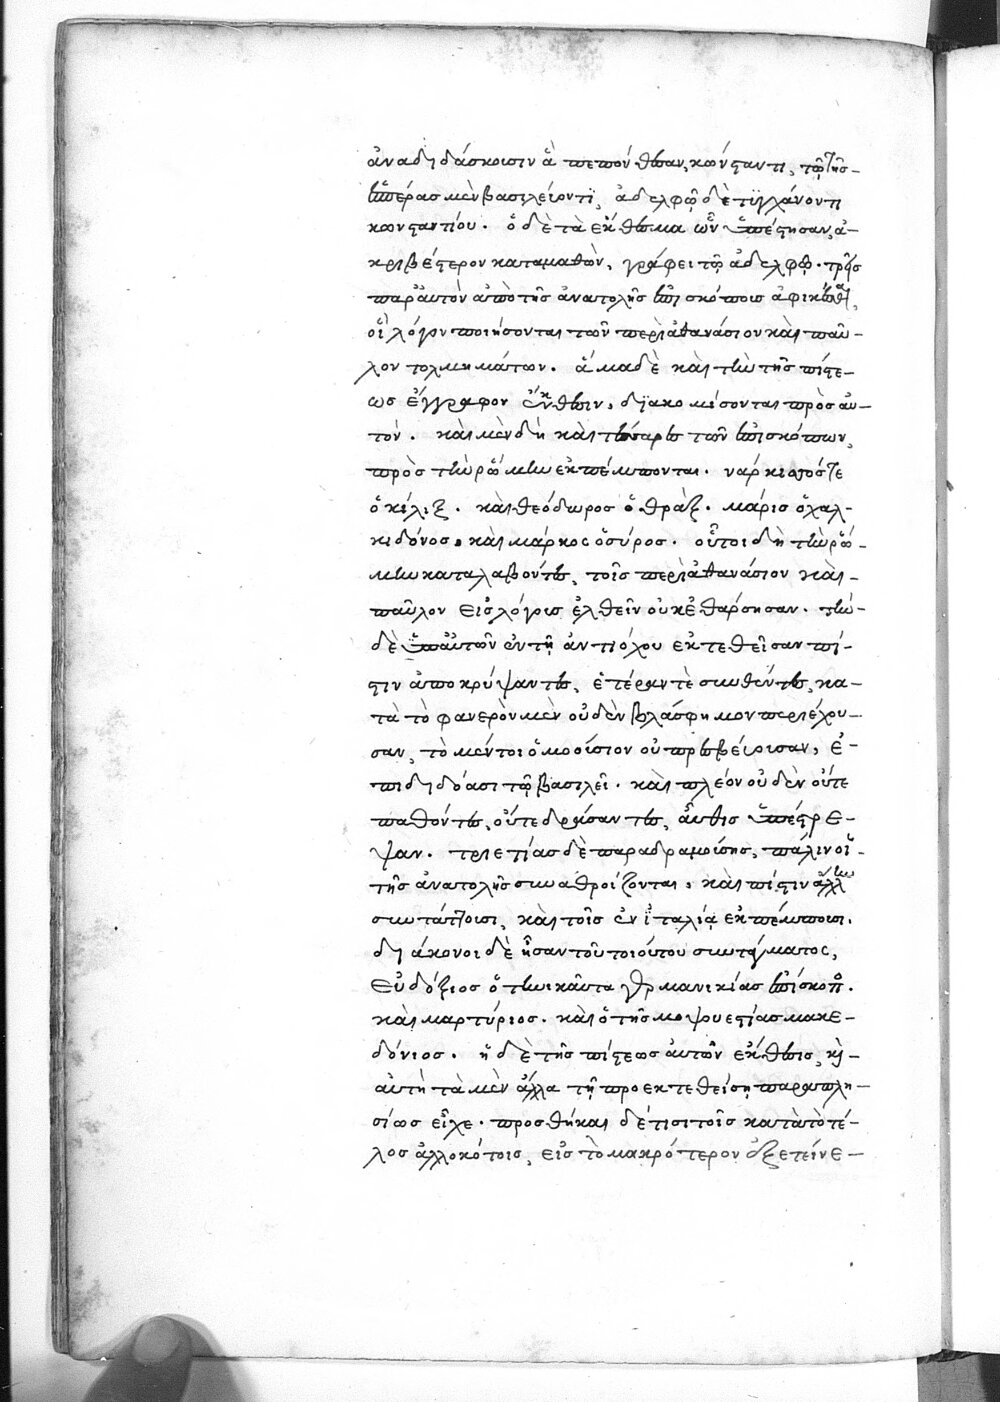 ἀναδιδάσκουσιν ἃ πεπόνθασιν, κώνσταντι, τῷ τῆς
ἑσπέρας μὲν βασιλεύοντι, ἀδελφῷ δὲ τυγχάνοντι
κωνσταντίου. ὁ δὲ τὰ ἐκείθεν ὧν ὑπέστησαν, ἀ-
κριβέστερον καταμαθὼν, γράφει τῷ ἀδελφῷ. τρεῖς
παρ' αὐτὸν ἀπὸ τῆς ἀνατολῆς ἐπισκόπους ἀφικέσθαι,
οἳ λόγον ποιήσονται τῶν περὶ ἀθανάσιον καὶ παῦ-
λον τολμημάτων. ἅμα δὲ καὶ τὴν τῆς πίστε-
ως ἔγγραφον ἔκθεσιν, διακομίσονται πρὸς αὐ-
τόν. καὶ μὲν δὴ καὶ τέσσαρες τῶν ἐπισκόπων,
πρὸς τὴν ῥώμην ἐκπέμπονται. νάρκισσός τε
ὁ κίλιξ. καὶ θεόδωρος ὁ θρᾶξ. μάρις ὁ χαλ-
κιδόνος. καὶ μάρκος ὁ σύρος. οὗτοι δὴ τὴν ῥώ-
μην καταλαβόντες, τοῖς περὶ ἀθανάσιον καὶ
παῦλον εἰς λόγους ἐλθεῖν οὐκ ἐθάρσησαν. τὴν
δὲ ὑπ' αὐτῶν ἐν τῇ ἀντιόχου ἐκτεθεῖσαν πί-
στιν ἀποκρύψαντες, ἑτέραν τὲ συνθέντες, κα-
τὰ τὸ φανερὸν μὲν οὐδὲν βλάσφημον περιέχου-
σαν, τὸ μέντοι ὁμοούσιον οὐ πρεσβεύουσαν, ἐ-
πιδιδόασι τῷ βασιλεῖ. καὶ πλέον οὐδὲν οὔτε
παθόντες, οὔτε δράσαντες, αὖθις ὑπέστρε-
ψαν. τριετίας δὲ παραδραμούσης, πάλιν οἱ
τῆς ἀνατολῆς συναθροίζονται, καὶ πίστιν ἄλλην
συντάττουσι, καὶ τοῖς ἐν ἰταλίᾳ ἐκπέμπουσι.
διάκονοι δὲ ἦσαν τοῦ τοιούτου συντάγματος,
εὐδόξιος ὁ τηνικαῦτα γερμανικίας ἐπίσκοπος.
καὶ μαρτύριος. καὶ ὁ τῆς μοψουεστίας μακε-
δόνιος. ἡ δὲ τῆς πίστεως αὐτῶν ἔκθεσις, καὶ
αὐτὴ τὰ μὲν ἄλλα τῇ προεκτεθείσῃ παραπλη-
σίως εἶχε. προσθήκαι δέ τισι τοῖς κατὰ τὸ τέ-
λος ἀλλοκότοις, εἰς τὸ μακρότερον ἐξετείνε-